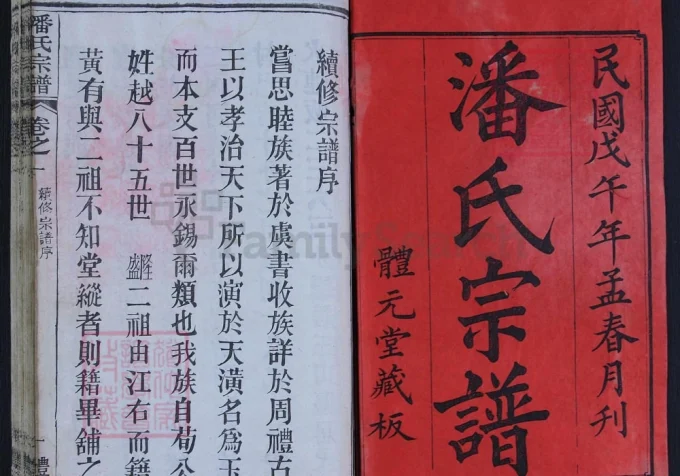 民國戊午年孟春月刊
潘氏宗譜
體元堂藏板
續修宗譜序
嘗思睦族著於虞書收族詳於周禮古
王以孝治天下所以演於天潢名為玉
而本支百世永錫爾類也我族自荀公
姓越八十五世 二祖由江右而籍
黃有與二祖不知堂縱者則籍畢舖之
潘氏宗譜
卷之一
續修宗譜序
一
體
FamilySearch